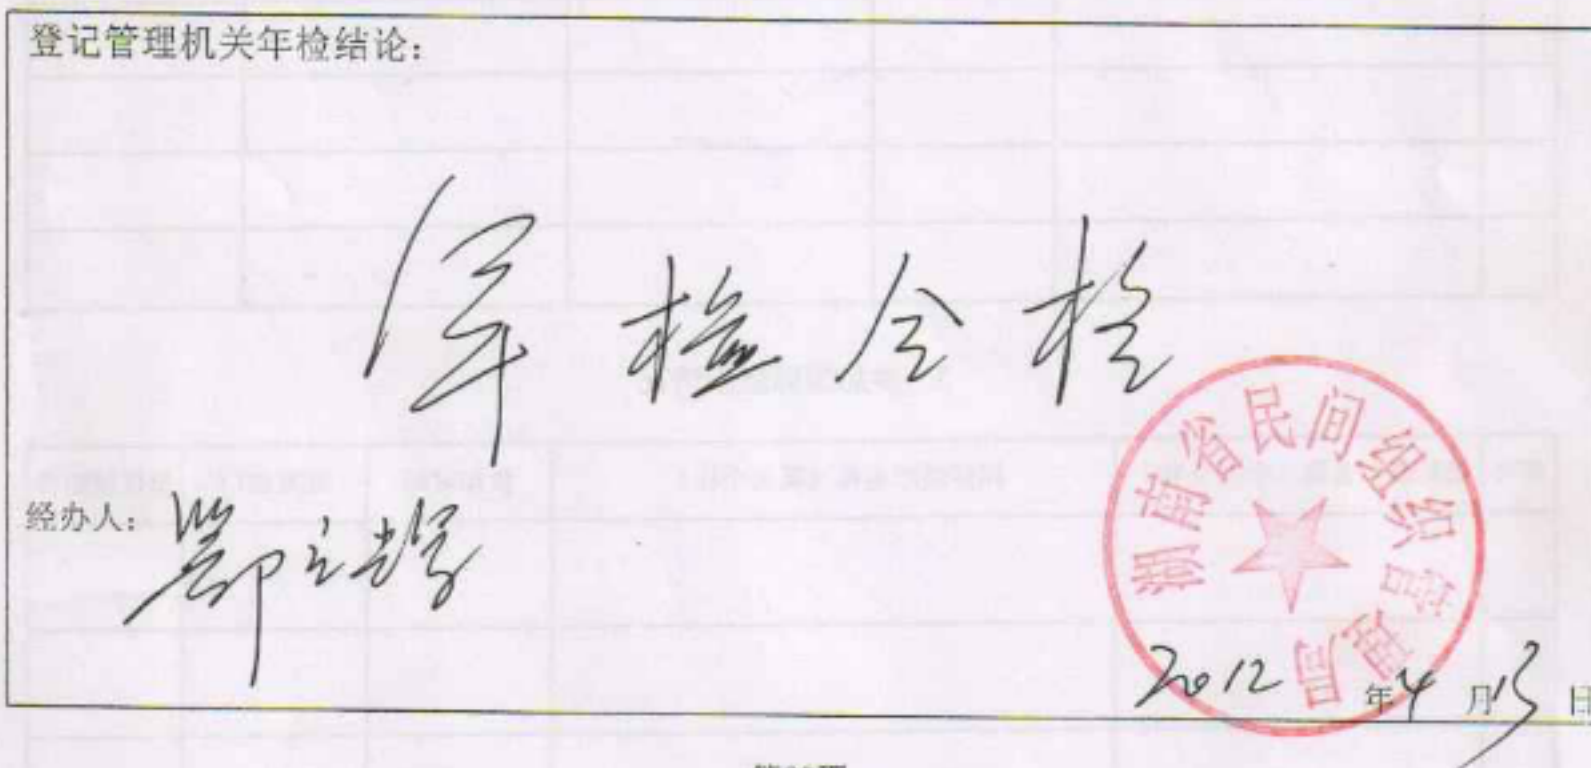 登记管理机关年检结论：
年检合格
经办人：
湖南省民间组织管理局
2012年4月13日